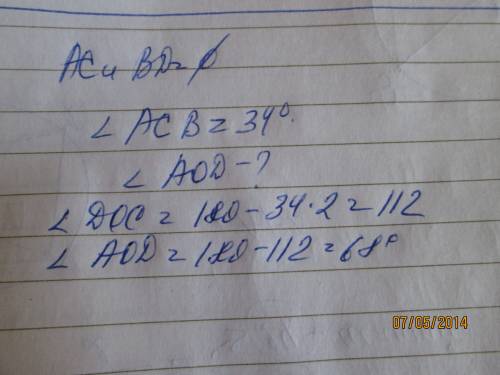 AC и BD = d
∠ ACB = 34°.
∠ AOD - ?
∠ DOC = 180 - 34 · 2 = 112
∠ AOD = 180 - 112 = 68°
07/05/2014